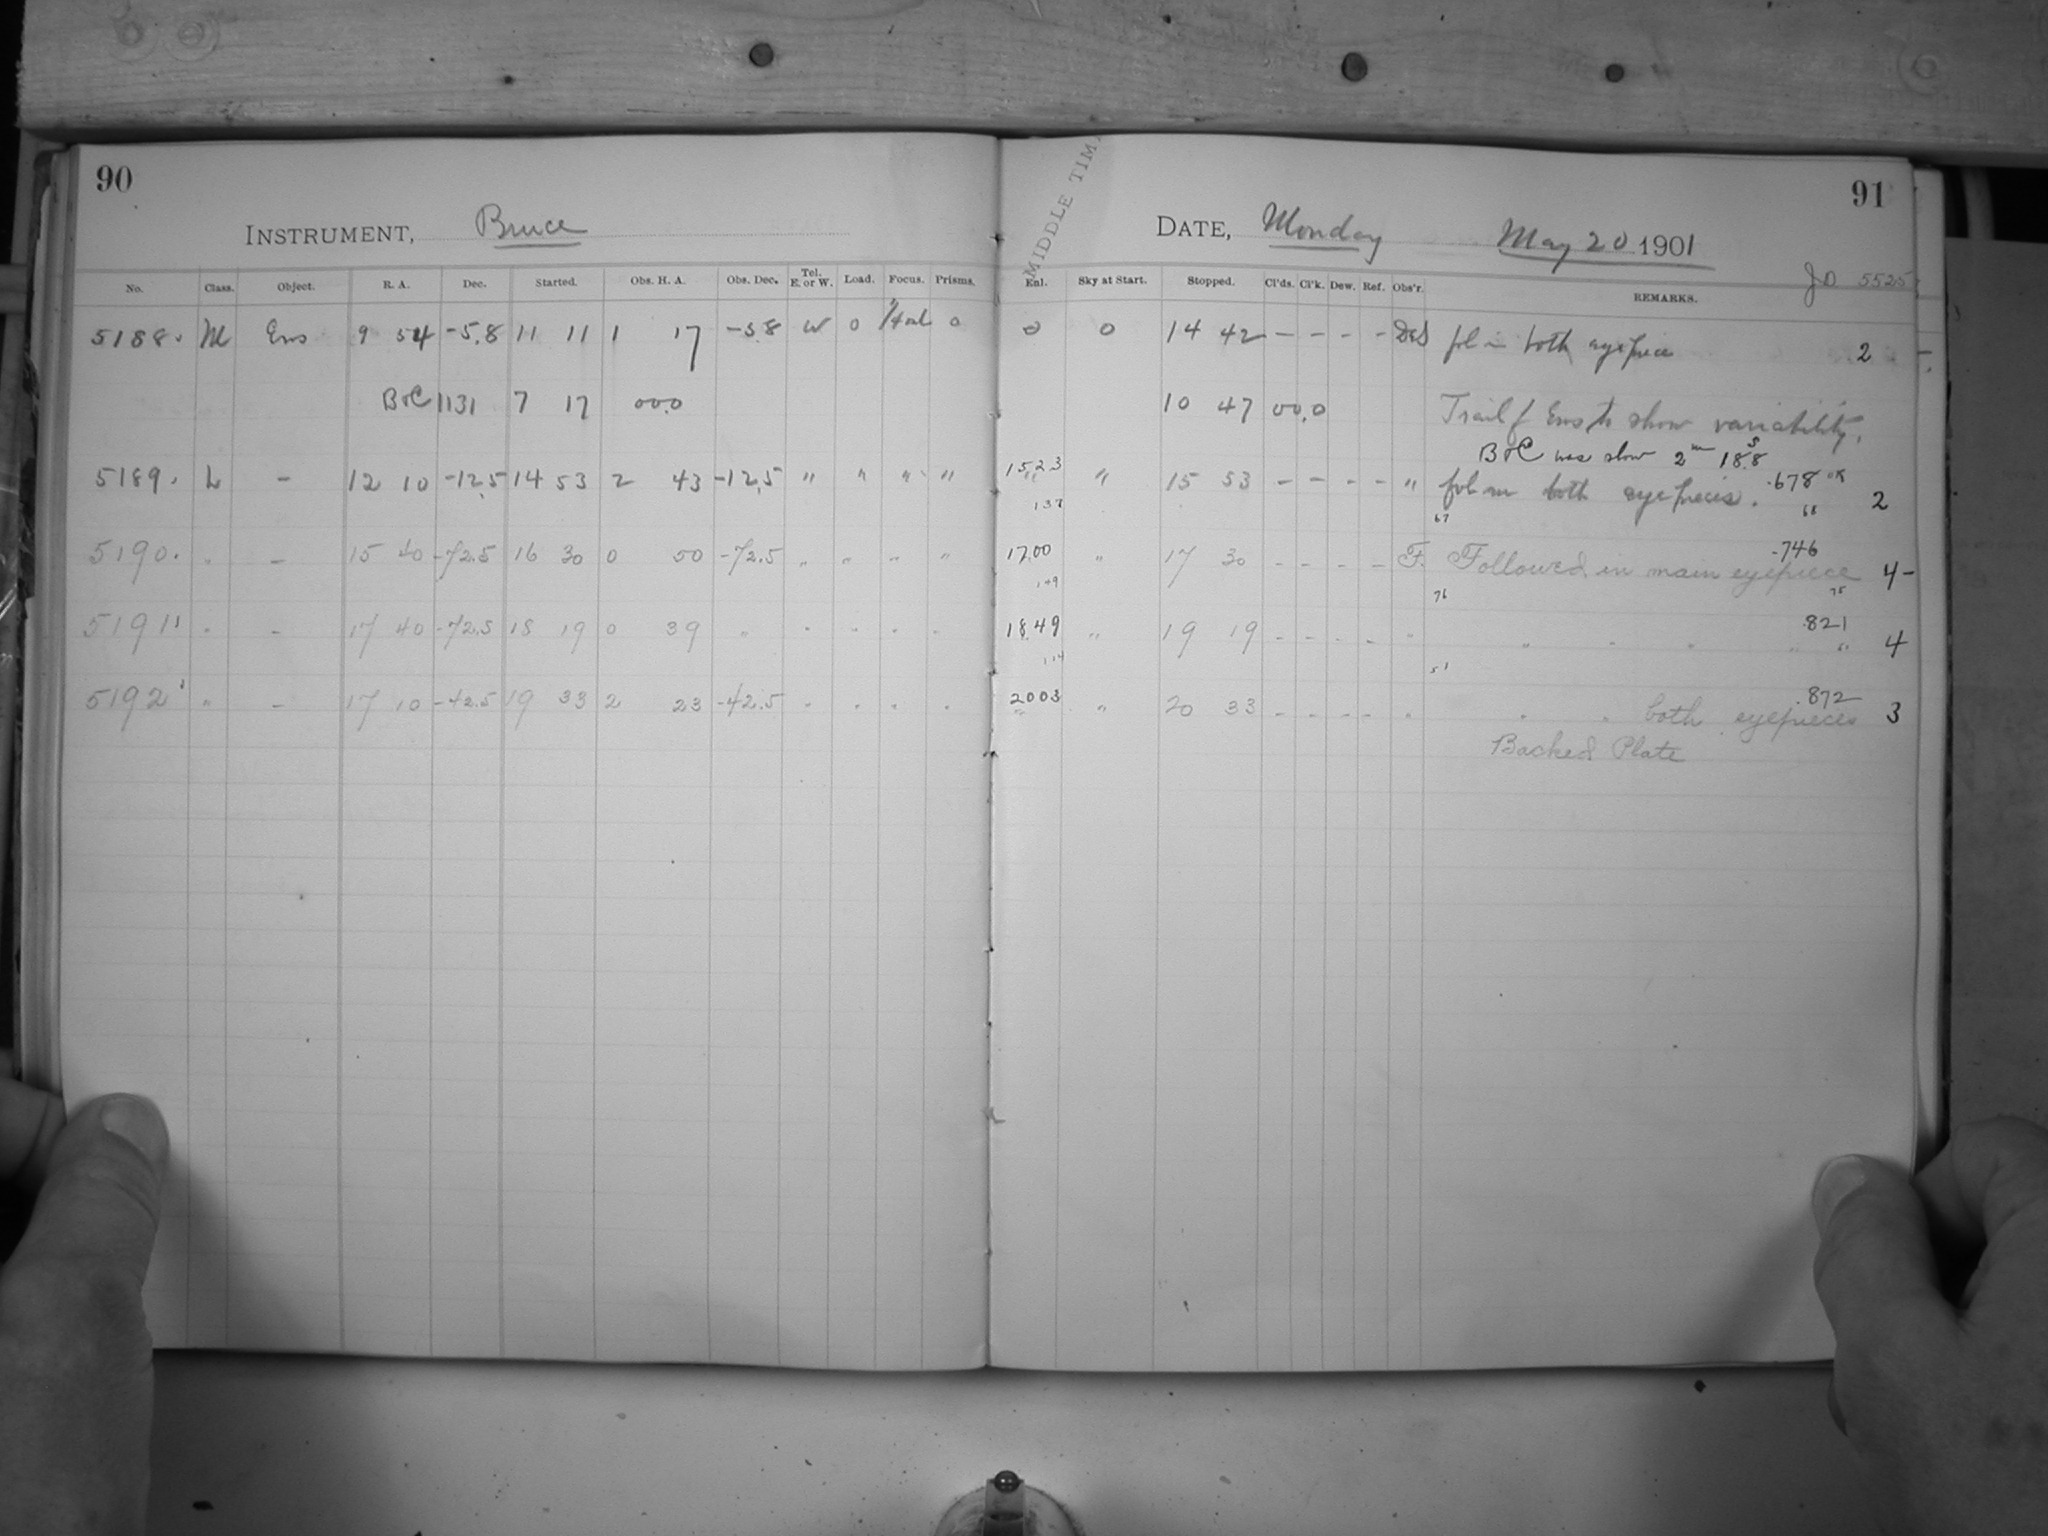 90
INSTRUMENT, Bruce
No. Class. Object. R. A. Dec. Started. Obs. H. A. Obs. Dec. Tel. E. or W. Load. Focus. Prisms.
5188. M Eros 9 54 -5.8 11 11 1 17 -5.8 W 0 0
B & C 1131 7 17 00.0
5189. L - 12 10 -12.5 14 53 2 43 -12.5 " " " "
5190. " - 15 40 -72.5 16 30 0 50 -72.5 " " " "
5191 " - 17 40 -72.5 18 19 0 39 " " " " "
5192 " - 17 10 -42.5 19 33 2 23 -42.5 " " " "
91
MIDDLE TIM
DATE, Monday May 20 1901
JD 5525
Enl. Sky at Start. Stopped. Cl'ds. Cl'k. Dew. Ref. Obs'r. REMARKS.
0 0 14 42 - - - - fol in both eyepiece 2
10 47 00.0 Trail of Eros to show variability.
B & C was slow 2m 18.8s
15,23 " 15 53 - - - - " fol in both eyepieces. .678 2
137 67
17,00 " 17 30 - - - - F. Followed in main eyepiece .746 4-
149 76 75
18,49 " 19 19 - - - - " " " " " .821 4
114 51
2003 " 20 33 - - - - " " " both eyepieces .872 3
Backed Plate